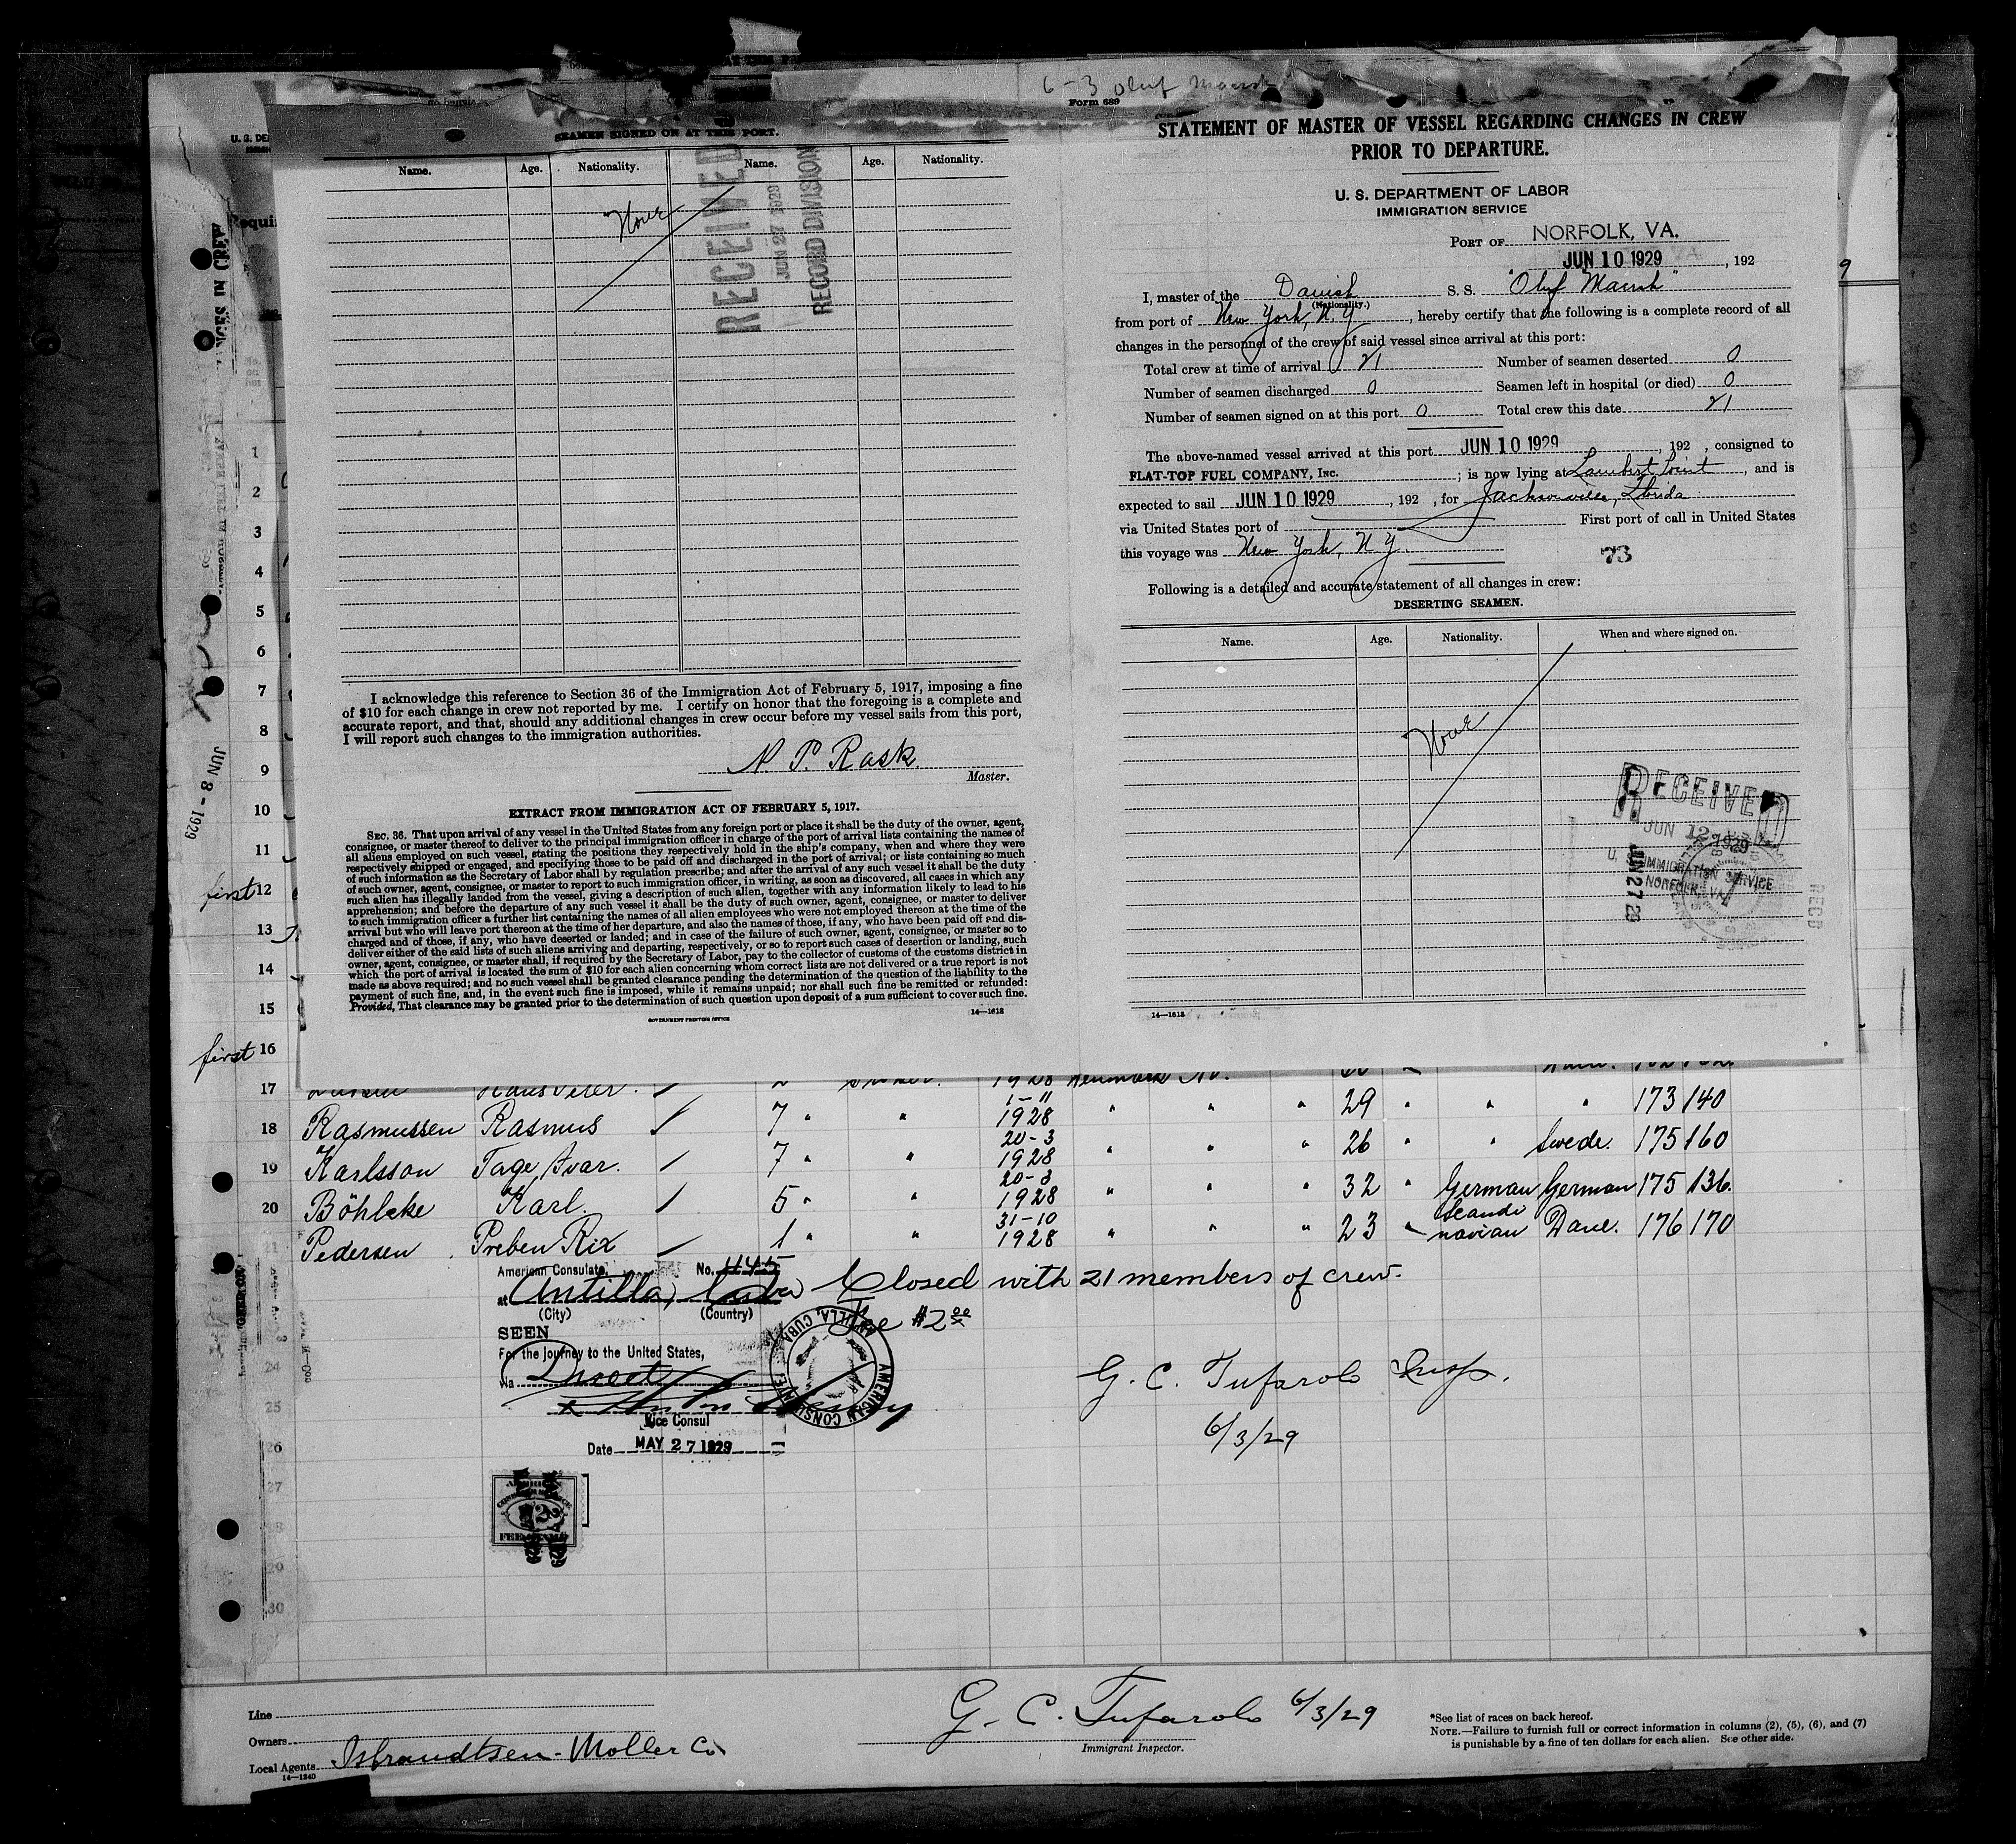 6-3 Oluf Maersk
Form 689
SEAMEN SIGNED ON AT THIS PORT.
Name. Age. Nationality. Name. Age. Nationality.
None
RECEIVED
JUN 27 1929
RECORD DIVISION
I acknowledge this reference to Section 36 of the Immigration Act of February 5, 1917, imposing a fine
of $10 for each change in crew not reported by me. I certify on honor that the foregoing is a complete and
accurate report, and that, should any additional changes in crew occur before my vessel sails from this port,
I will report such changes to the immigration authorities.
N P. Rask.
Master.
EXTRACT FROM IMMIGRATION ACT OF FEBRUARY 5, 1917.
SEC. 36. That upon arrival of any vessel in the United States from any foreign port or place it shall be the duty of the owner, agent,
consignee, or master thereof to deliver to the principal immigration officer in charge of the port of arrival lists containing the names of
all aliens employed on such vessel, stating the positions they respectively hold in the ship's company, when and where they were
respectively shipped or engaged, and specifying those to be paid off and discharged in the port of arrival; or lists containing so much
of such information as the Secretary of Labor shall by regulation prescribe; and after the arrival of any such vessel it shall be the duty
of such owner, agent, consignee, or master to report to such immigration officer, in writing, as soon as discovered, all cases in which any
such alien has illegally landed from the vessel, giving a description of such alien, together with any information likely to lead to his
apprehension; and before the departure of any such vessel it shall be the duty of such owner, agent, consignee, or master to deliver
to such immigration officer a further list containing the names of all alien employees who were not employed thereon at the time of the
arrival but who will leave port thereon at the time of her departure, and also the names of those, if any, who have been paid off and dis-
charged and of those, if any, who have deserted or landed; and in case of the failure of such owner, agent, consignee, or master so to
deliver either of the said lists of such aliens arriving and departing, respectively, or so to report such cases of desertion or landing, such
owner, agent, consignee, or master shall, if required by the Secretary of Labor, pay to the collector of customs of the customs district in
which the port of arrival is located the sum of $10 for each alien concerning whom correct lists are not delivered or a true report is not
made as above required; and no such vessel shall be granted clearance pending the determination of the question of the liability to the
payment of such fine, and, in the event such fine is imposed, while it remains unpaid; nor shall such fine be remitted or refunded:
Provided, That clearance may be granted prior to the determination of such question upon deposit of a sum sufficient to cover such fine.
GOVERNMENT PRINTING OFFICE
14—1613
STATEMENT OF MASTER OF VESSEL REGARDING CHANGES IN CREW
PRIOR TO DEPARTURE.
U. S. DEPARTMENT OF LABOR
IMMIGRATION SERVICE
PORT OF NORFOLK, VA.
JUN 10 1929, 192
I, master of the Danish S. S. "Oluf Maersk"
(Nationality.)
from port of New York, N. Y., hereby certify that the following is a complete record of all
changes in the personnel of the crew of said vessel since arrival at this port:
Total crew at time of arrival 21 Number of seamen deserted 0
Number of seamen discharged 0 Seamen left in hospital (or died) 0
Number of seamen signed on at this port 0 Total crew this date 21
The above-named vessel arrived at this port JUN 10 1929, 192 , consigned to
FLAT-TOP FUEL COMPANY, INC. ; is now lying at Lambert Point, and is
expected to sail JUN 10 1929, 192 , for Jacksonville, Florida
via United States port of First port of call in United States
this voyage was New York, N. Y.
73
Following is a detailed and accurate statement of all changes in crew:
DESERTING SEAMEN.
Name. Age. Nationality. When and where signed on.
None
RECEIVED
JUN 12 1929
U. S. IMMIGRATION SERVICE
NORFOLK, VA.
JUN 27 29
RECD
14—1613
JUN 8 - 1929
1
2
3
4
5
6
7
8
9
10
11
first 12
13
14
15
first 16
17 Hans Peter.
18 Rasmussen Rasmus 7 " " 1-11 1928 " " " 29 " " " 173 140
19 Karlsson Tage Ivar. 7 " " 20-3 1928 " " " 26 " " Swede. 175 160
20 Böhlcke Karl. 5 " " 20-3 1928 " " " 32 " German German 175 136.
21 Pedersen Preben Rix 1 " " 31-10 1928 " " " 23 " Scandinavian Dane. 176 170
American Consulate, No. 445
at Antilla, Cuba Closed with 21 members of crew.
(City) (Country)
Fee $2.00
SEEN
For the journey to the United States,
via Direct
Vice Consul
Date MAY 27 1929
AMERICAN CONSULATE ANTILLA, CUBA
G. C. Tufarolo Insp.
6/3/29
24
25
26
27
28
29
30
Line
Owners
Local Agents Isbrandtsen-Moller Co
14—1240
G. C. Tufarolo 6/3/29
Immigrant Inspector.
*See list of races on back hereof.
NOTE.—Failure to furnish full or correct information in columns (2), (5), (6), and (7)
is punishable by a fine of ten dollars for each alien. See other side.